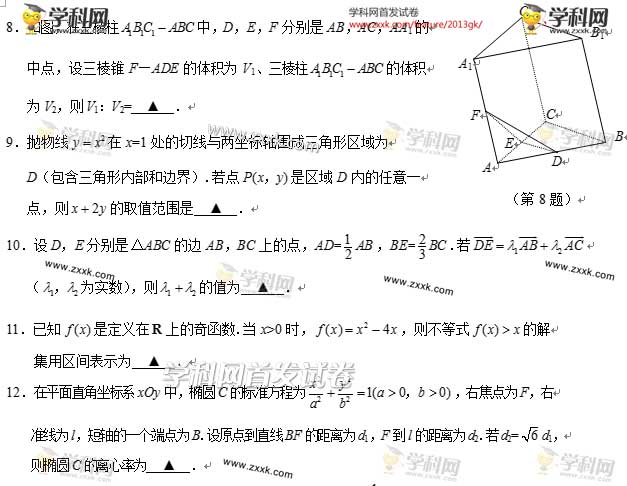 学科网首发试卷
www.zxxk.com/feature/2013gk/
8. 如图,在三棱柱A₁B₁C₁-ABC中,D,E,F分别是AB,AC,AA₁的
中点,设三棱锥F-ADE的体积为V₁、三棱柱A₁B₁C₁-ABC的体积
为V₂,则V₁:V₂= ▲ .
9. 抛物线y=x²在x=1处的切线与两坐标轴围成三角形区域为
D(包含三角形内部和边界).若点P(x,y)是区域D内的任意一
点,则x+2y的取值范围是 ▲ .
A₁
B₁
F
C
E
B
A
D
(第8题)
10. 设D,E分别是△ABC的边AB,BC上的点,AD=1/2AB,BE=2/3BC.若DE=λ₁AB+λ₂AC
(λ₁,λ₂为实数),则λ₁+λ₂的值为 .
11. 已知f(x)是定义在R上的奇函数.当x>0时,f(x)=x²-4x,则不等式f(x)>x的解
集用区间表示为 ▲ .
学科网首发试卷
12. 在平面直角坐标系xOy中,椭圆C的标准方程为x²/a²+y²/b²=1(a>0,b>0),右焦点为F,右
准线为l,短轴的一个端点为B.设原点到直线BF的距离为d₁,F到l的距离为d₂.若d₂=√6d₁,
则椭圆C的离心率为 ▲ .
学科网
www.zxxk.com